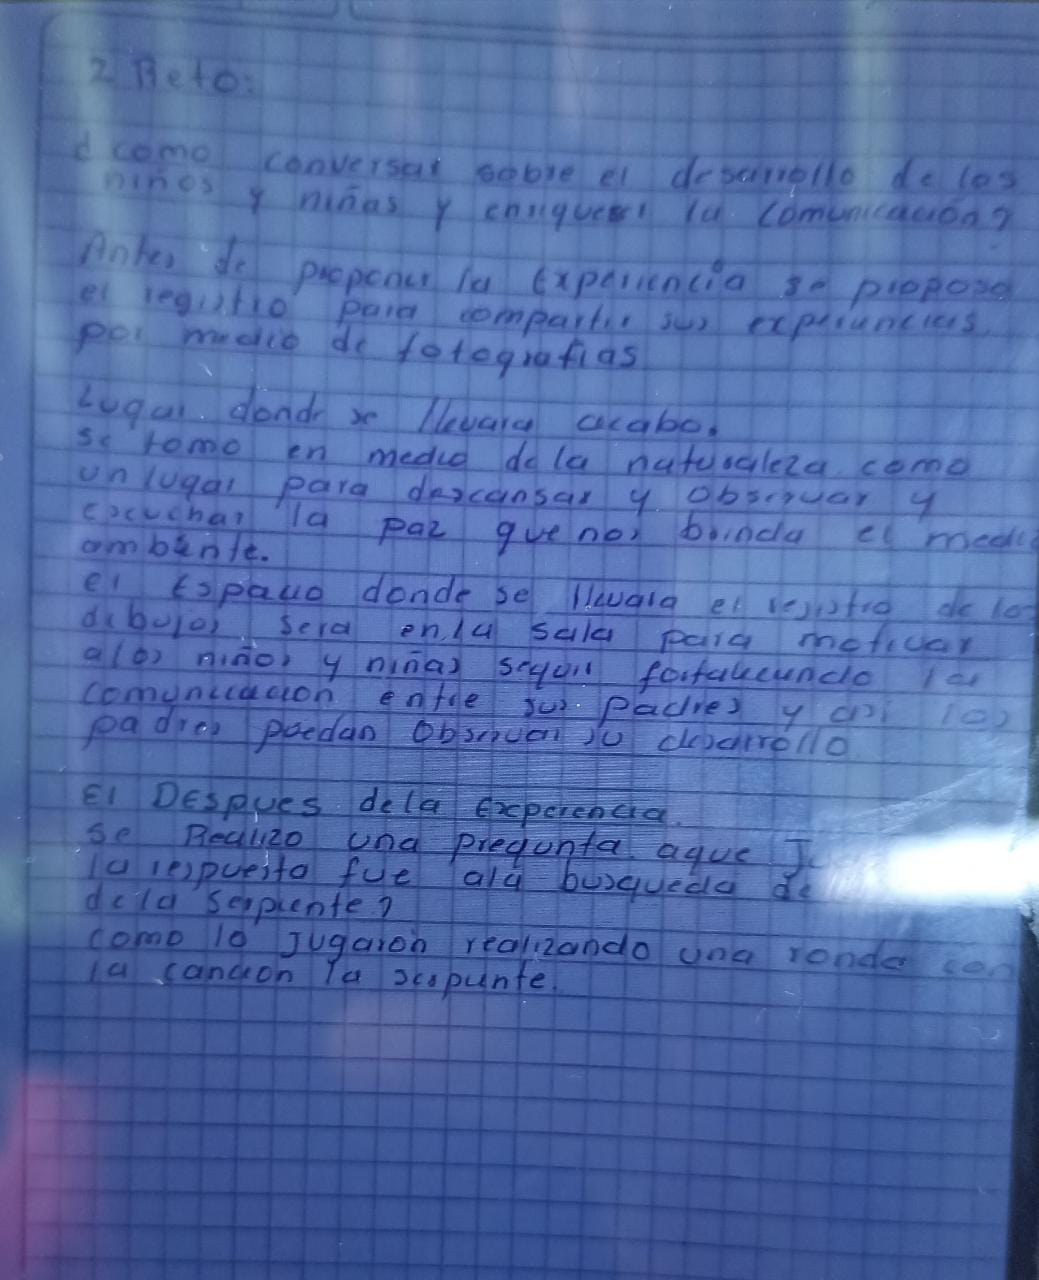 2 Reto:
¿como conversar sobre el desarrollo de los
niños y niñas y enriquecer la comunicación?
Antes de proponer la Experiencia se propone
el registro para compartir sus experiencias
por medio de fotografias
Lugar donde se llevara acabo.
se tomo en medio de la naturaleza como
un lugar para descansar y Observar y
escuchar la paz que nos brinda el medio
ambiente.
el Espacio donde se llevara el registro de los
dibujos sera en la sala para motivar
alos niños y niñas seguir fortaleciendo la
comunicacion entre sus padres y asi los
padres puedan Observar su desarrollo
El DEspues dela Experencia.
se Realizo una pregunta aque
la respuesta fue ala busqueda de
dela serpiente?
como lo Jugaron realizando una ronda con
la cancion la serpiente.